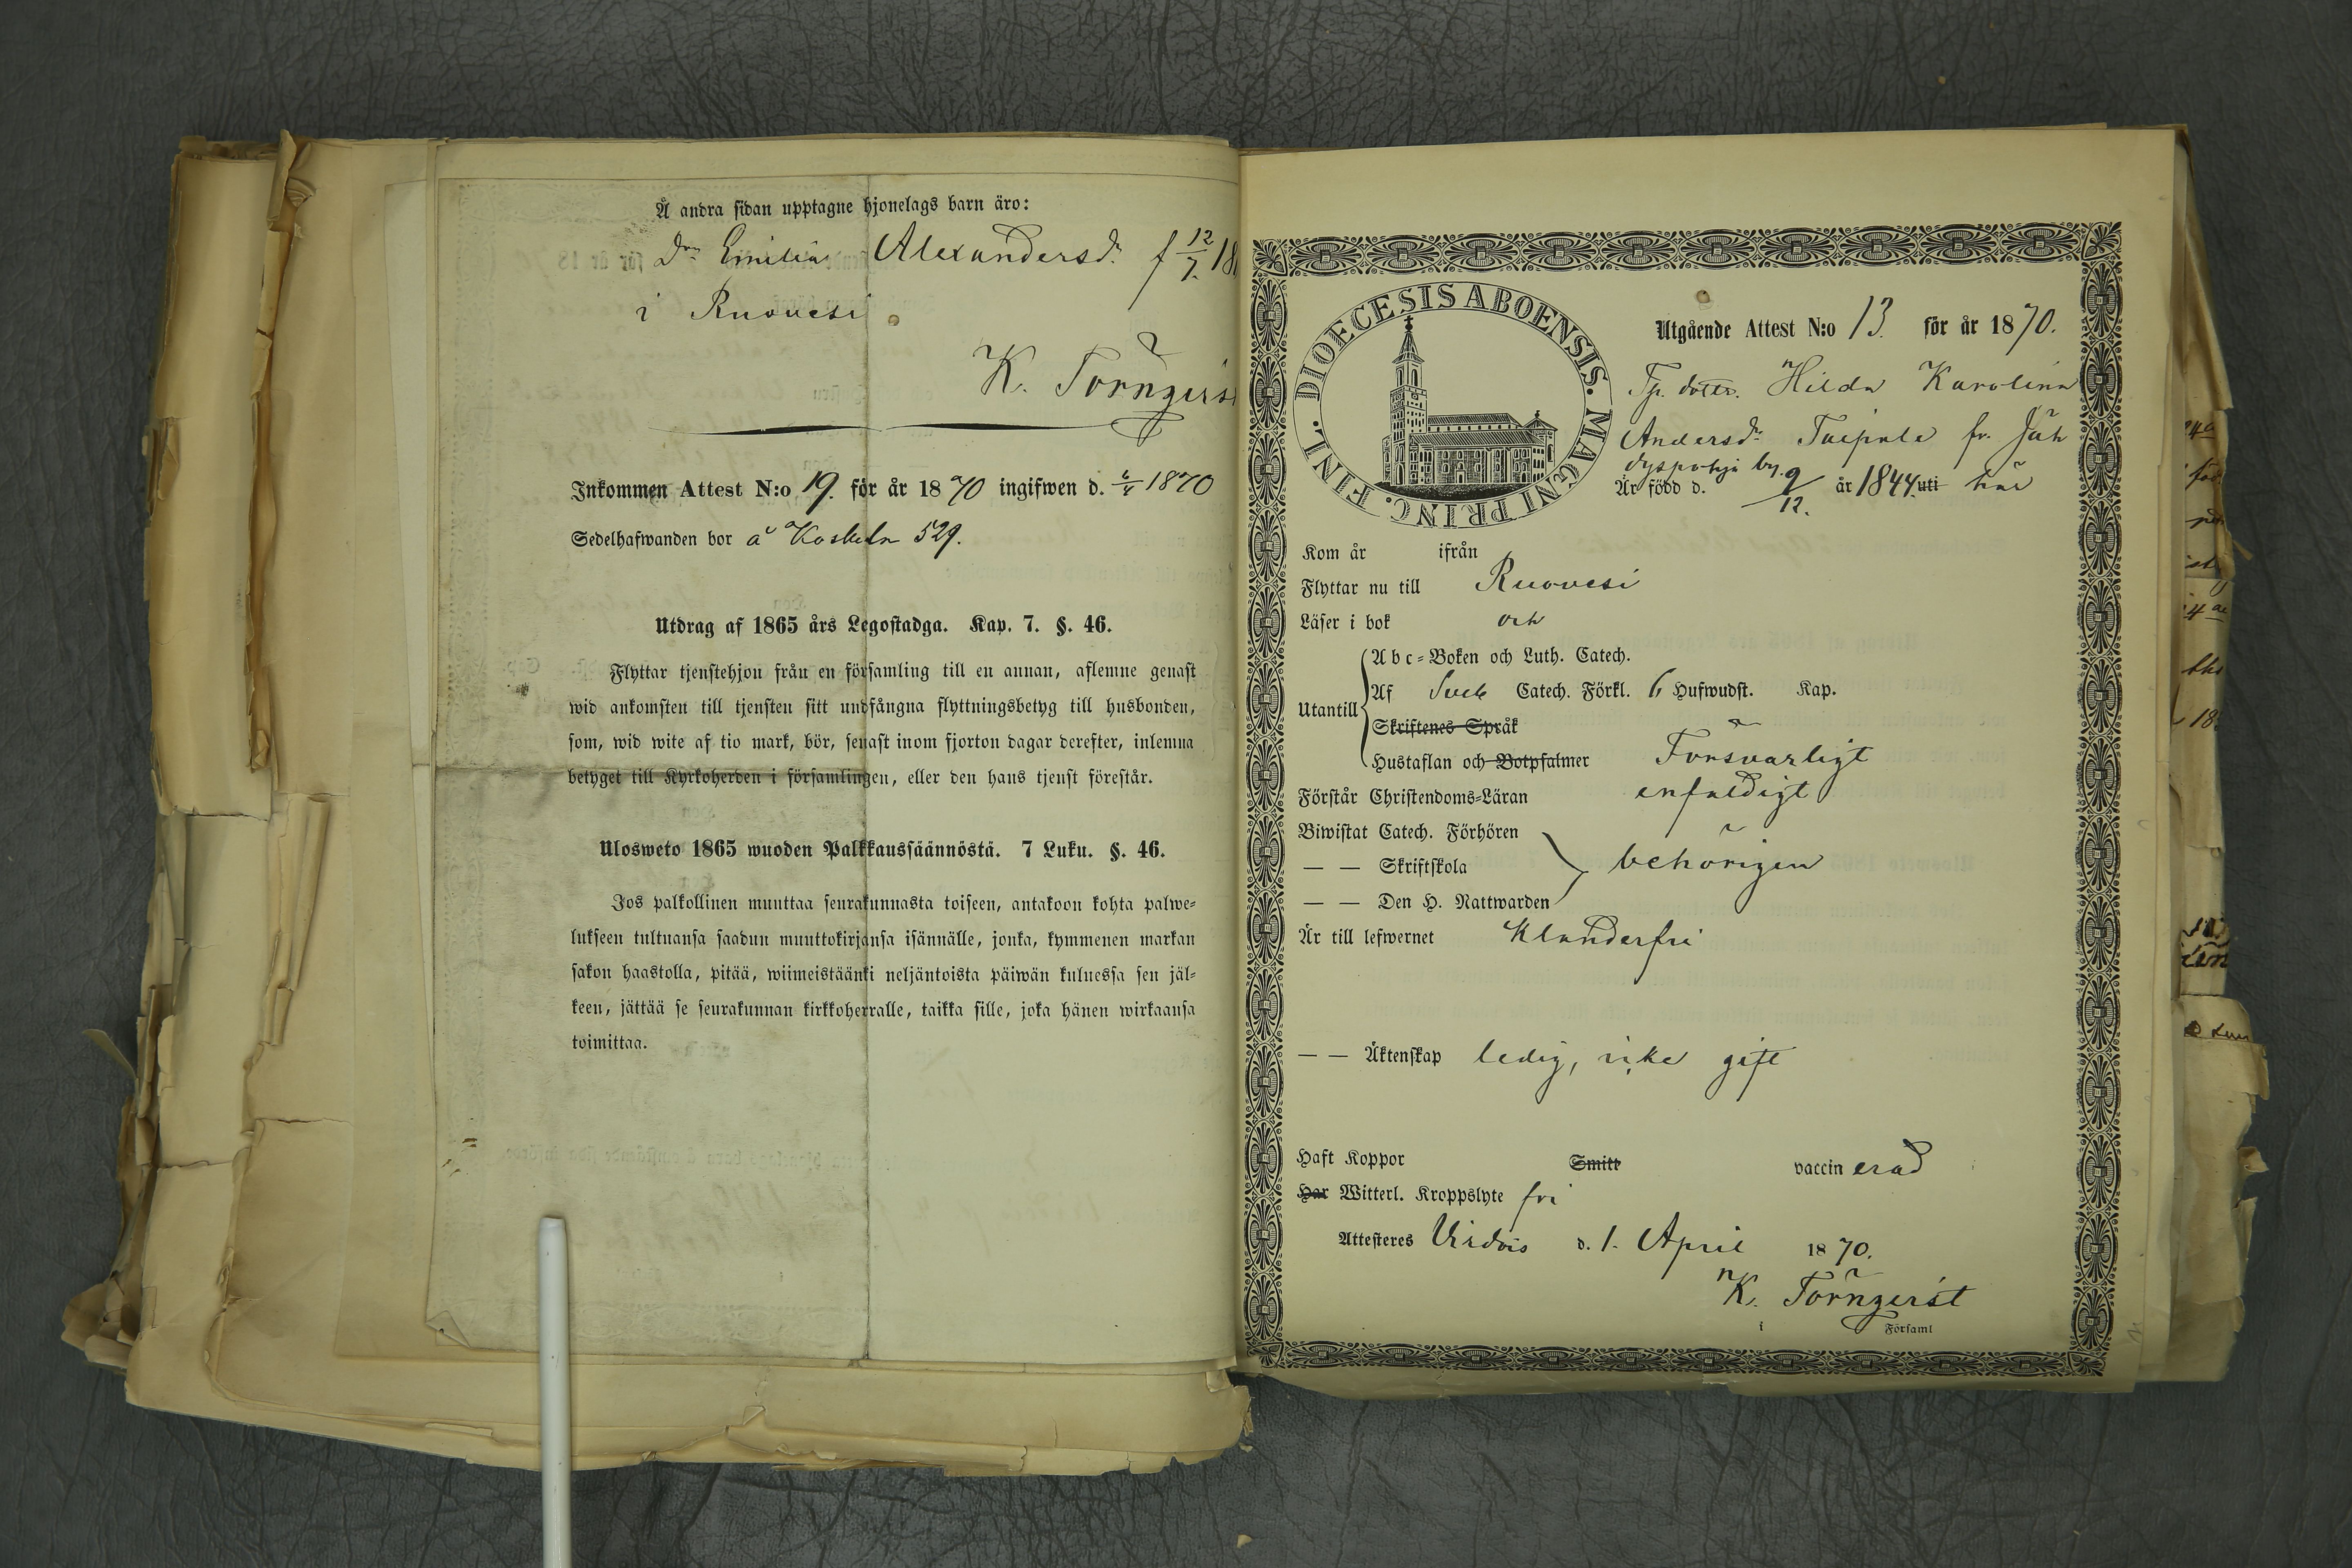 Å andra sidan upptagne hjonelags barn äro:
Dr Emilia Alexandersdr f 12/7 18
i Ruovesi
K. Törnqvist
Inkommen Attest N:o 19. för år 1870 ingifwen d. 1870
Sedelhafwanden bor å Koskela 529.
Utdrag af 1865 års Legostadga. Kap. 7. §. 46.
Flyttar tjenstehjon från en församling till en annan, aflemne genast
wid ankomsten till tjensten sitt undfångna flyttningsbetyg till husbonden,
som, wid wite af tio mark, bör, senast inom fjorton dagar derefter, inlemna
betyget till Kyrkoherden i församlingen, eller den hans tjenst förestår.
Ulosweto 1865 wuoden Palkkaussäännöstä. 7 Luku. §. 46.
Jos palkollinen muuttaa seurakunnasta toiseen, antakoon kohta palwe-
lukseen tultuansa saadun muuttokirjansa isännälle, jonka, kymmenen markan
sakon haastolla, pitää, wiimeistäänki neljäntoista päiwän kuluessa sen jäl-
keen, jättää se seurakunnan kirkkoherralle, taikka sille, joka hänen wirkaansa
toimittaa.
DIOECESIS ABOENSIS. MAGNI PRINC. FINL.
Utgående Attest N:o 13. för år 1870.
Tp. dotter. Hilda Karolina
Andersdr Taipale fr. Jäh
dyspohja by.
Är född d. 9/12. år 1844 uti här
Kom år ifrån
Flyttar nu till Ruovesi
Läser i bok och
Utantill
Abc-Boken och Luth. Catech.
Af Sveb Catech. Förkl. 6 Hufwudst. Kap.
Skriftenes Språk
Hustaflan och Botpsalmer Försvarligt
Förstår Christendoms-Läran enfaldigt
Biwistat Catech. Förhören
— — Skriftskola behörigen
— — Den H. Nattwarden
Är till lefwernet Klanderfri
— — Äktenskap ledig, icke gift
Haft Koppor Smitt vaccinerad
Har Witterl. Kroppslyte fri
Attesteres Virdois d. 1. April 1870.
K. Törnqvist
i Församl